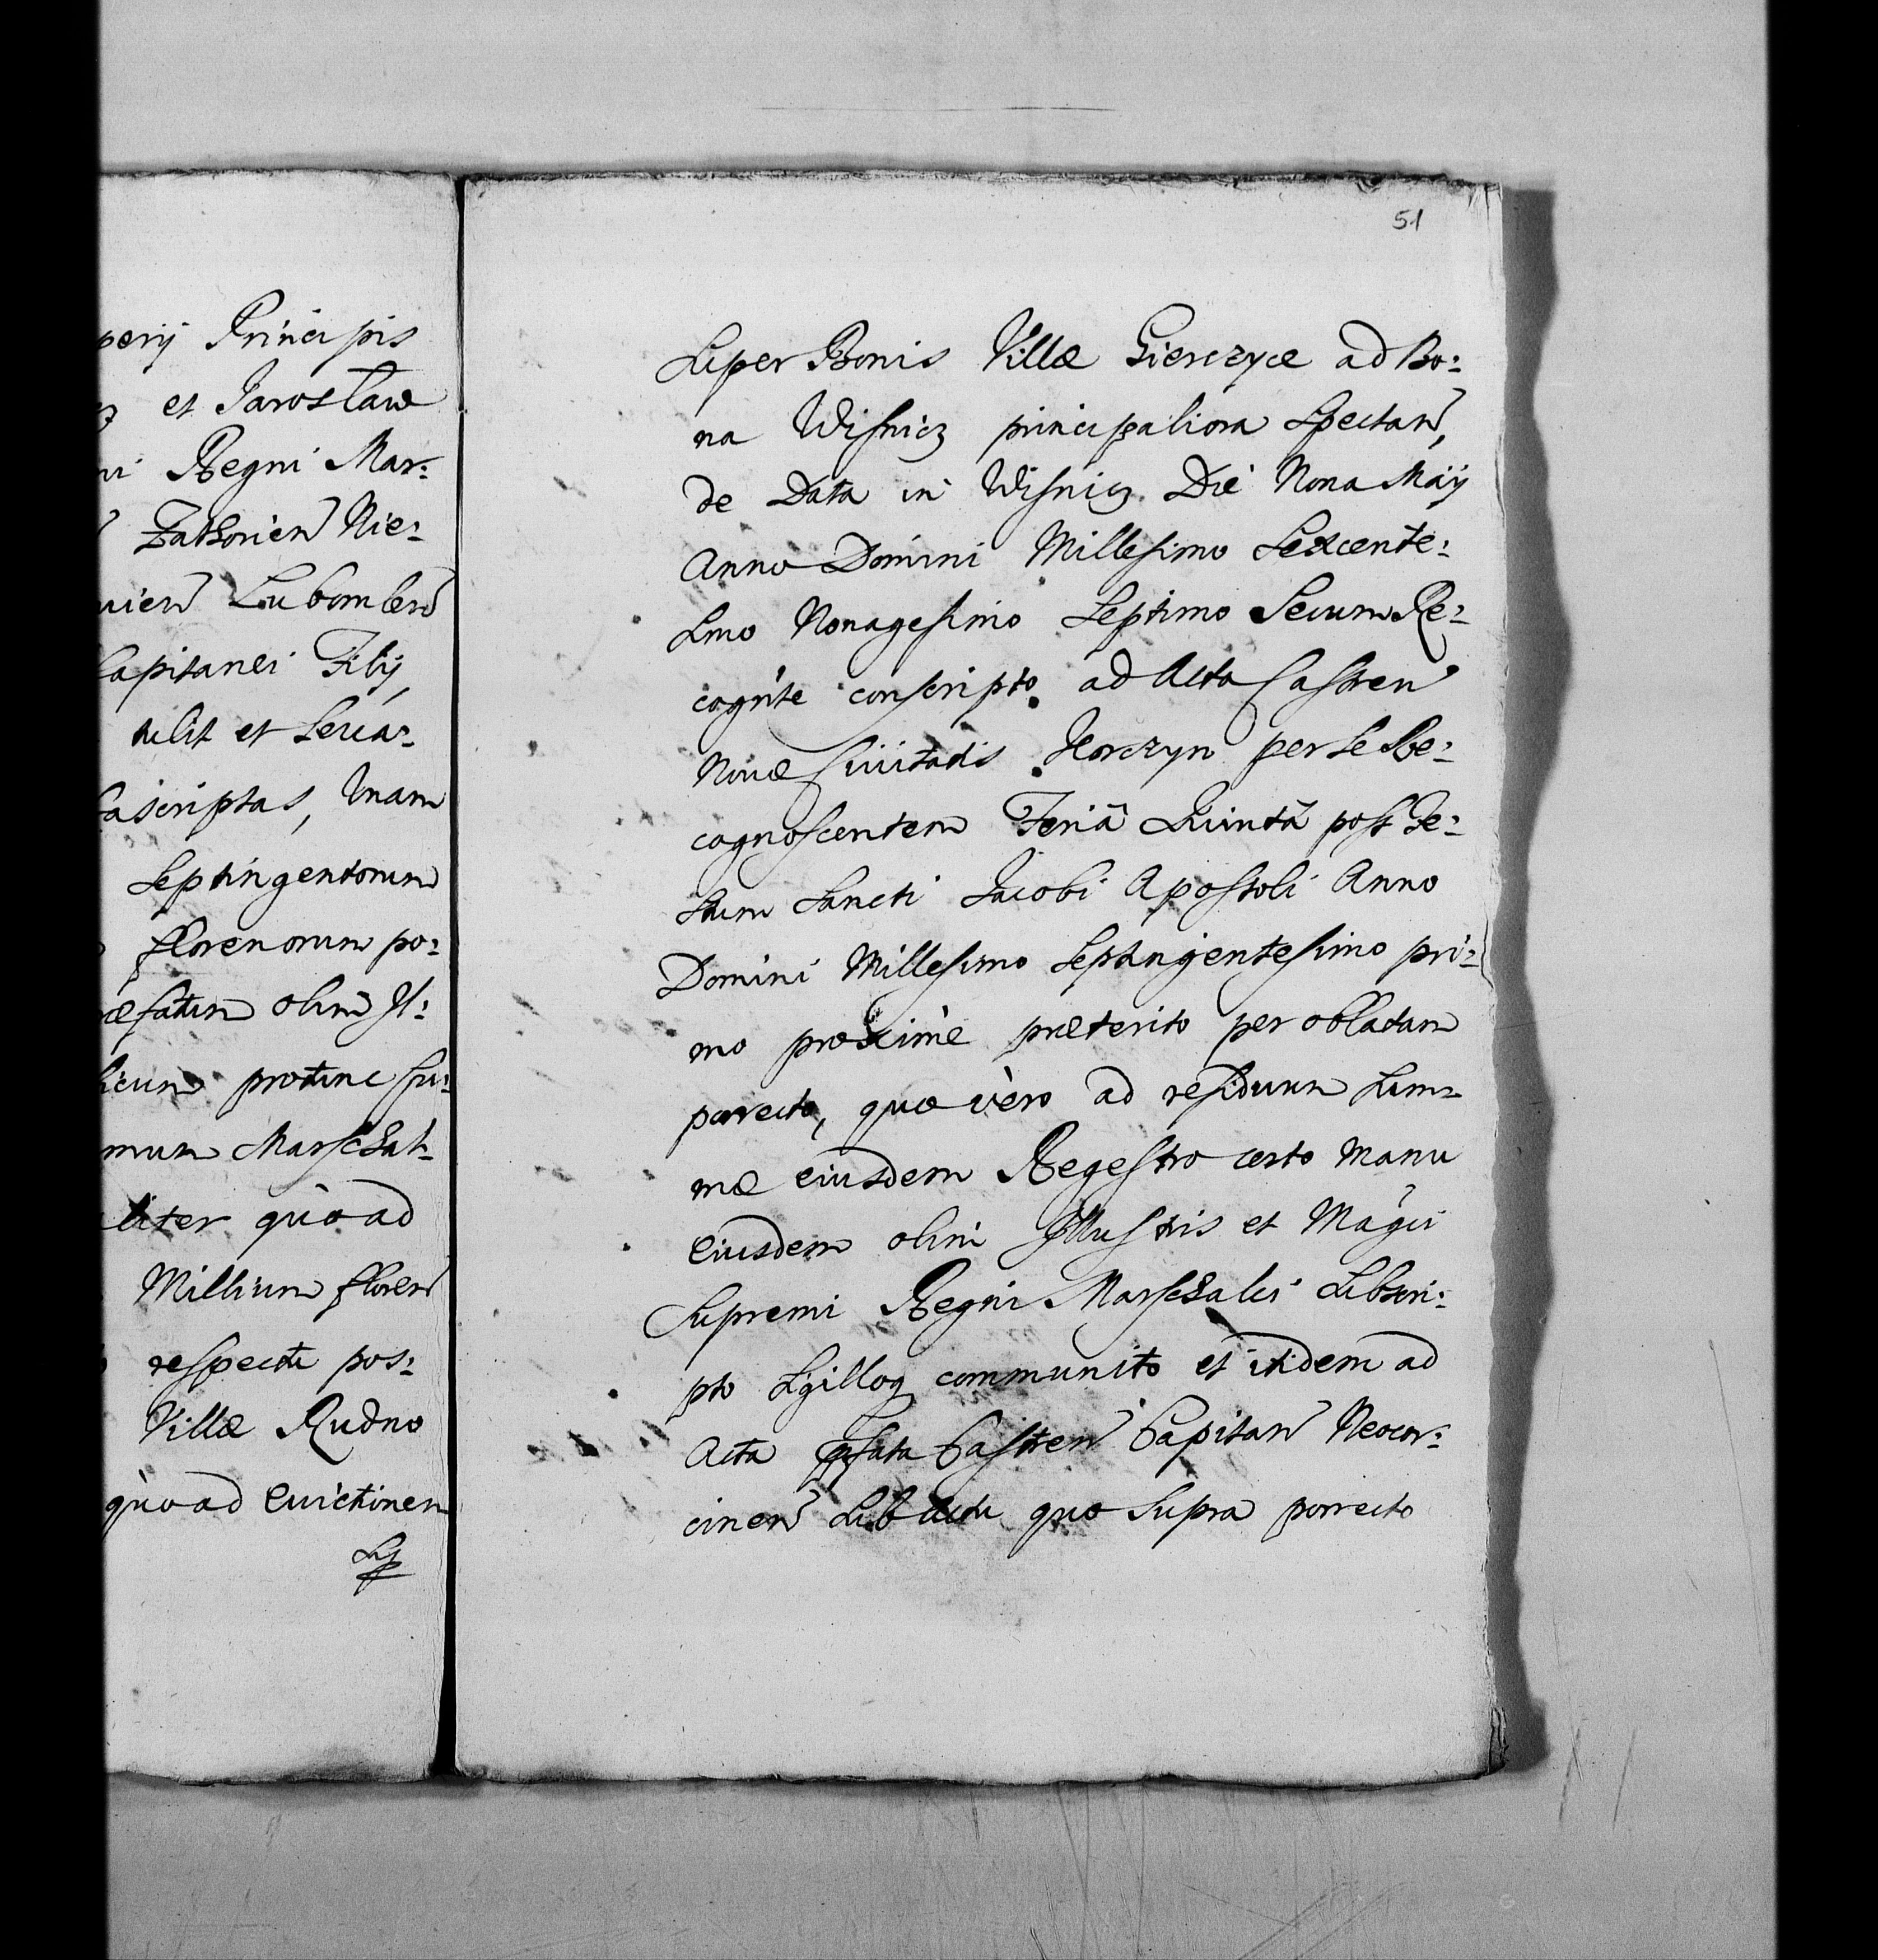 perij Principis
et Jarosławe
ni Regni Mar:
Zathorien Nie:
nien Lubomlen
Capitanei Filij,
tulit et Seua:
fascriptas, Unam
Septingentorum
florenorum po:
æfatum olim Jl:
licum protunc Su:
mum Marschal:
liter quo ad
Millium floren
respectu pos:
Villæ Rudno
quo ad Evictinem
51
Super Bonis Villæ Gierczyce ad Bo:
na Wisnicz principaliora Spectan,
de Data in Wisnicz Die Nona Maij
Anno Domini Millesimo Sexcente:
Smo Nonagesimo Septimo Secum Re:
cognte conscripto ad Acta Castren
Novæ Civitatis Korczyn per se Re:
cognoscentem Feriâ Quintâ post Fe:
stum Sancti Jacobi Apostoli Anno
Domini Millesimo Septingentesimo pri:
mo proxime præterito per oblatam
porrecto, quo vero ad residuum Sum:
mæ eiusdem Regestro certo Manu
Eiusdem olim Jllustris et Magci
Supremi Regni Marschalci Subscri:
pto Sgilloq communito et itidem ad
Acta pfata Castren Capitan Neocor:
cinen Sub actu quo Supra porrecto